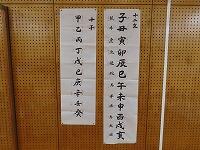 十二支
子丑寅卯辰巳午未申酉戌亥
十干
甲乙丙丁戊己庚辛壬癸